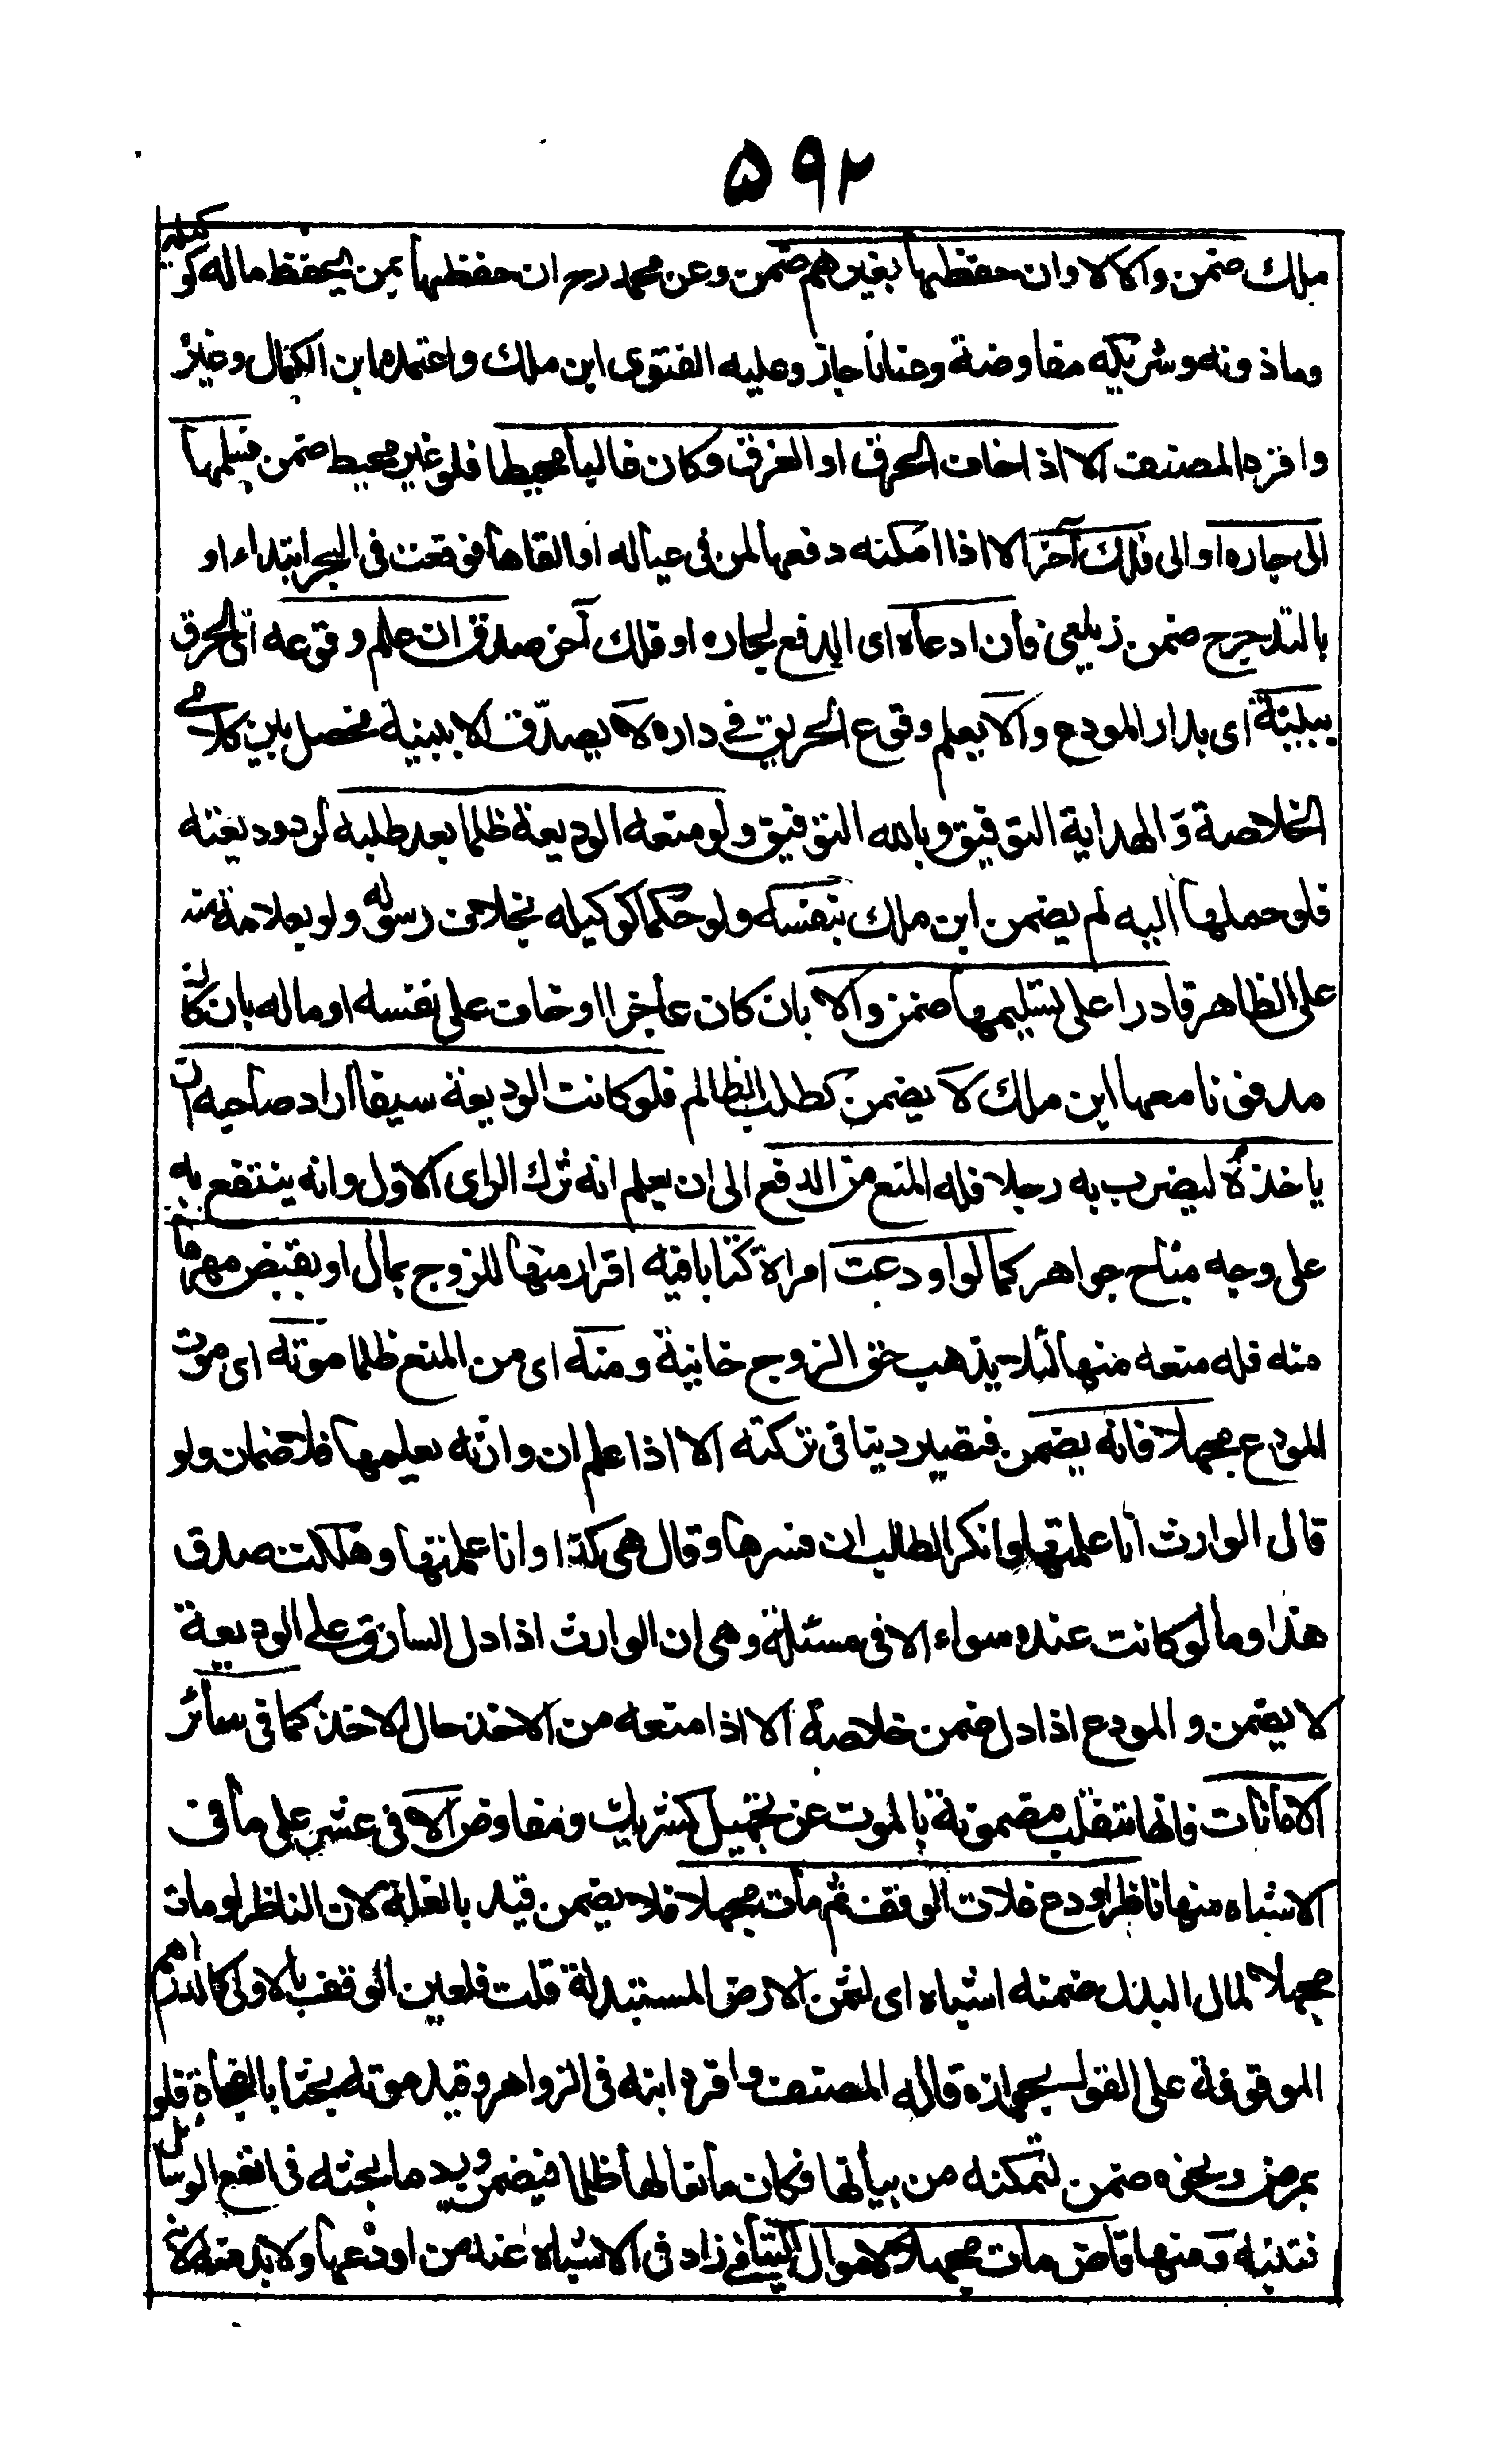 ۵۹۲
ملك ضمن والا لا وان حفظها بغيرهم ضمن وعن محمد رح ان حفظها بمن يحفظ ماله كوكيله
وماذونه وشريكه مفاوضة وعنانا جاز وعليه الفتوى ابن ملك واعتمده ابن الكمال وغيره
واقره المصنف الا اذا خاف الحرق او الغرق وكان غالبا محيطا فلو غير محيط ضمن فسلمها
الى جاره او الى فلك آخر الا اذا امكنه دفعها لمن فى عياله او القاها فوقعت فى البحر ابتداء او
بالتدحرج ضمن زيلعى فان ادعاه اى الدفع لجاره او فلك آخر صدق ان علم وقوعه اى الحرق
ببيته اى بدار المودع والا يعلم وقوع الحريق فے داره لا يصدّق الا ببينة فحصل بين كلامے
الخلاصة و الهداية التوفيق وبالله التوفيق ولو منعه الوديعة ظلما بعد طلبه لرد وديعته
فلو حملها اليه لم يضمن ابن ملك بنفسه ولو حكما كوكيله بخلاف رسوله ولو بعلامة منه
على الظاهر قادرا على تسليمها ضمن والا بان كان عاجزا او خاف على نفسه او ماله بان كان
مدفونا معها ابن ملك لا يضمن كطلب الظالم فلو كانت الوديعة سيفا اراد صاحبه ان
ياخذه ليضرب به رجلا فله المنع من الدفع الى ان يعلم انه ترك الراى الاول وانه ينتفع به
على وجه مباح جواهر كما لو اودعت امراة كتابا فيه اقرار منها للزوج بمال او بقبض مهرها
منه فله منعه منها لئلا يذهب حق الزوج خانية ومنه اى من المنع ظلما موته اى موت
المودع مجهلا فانه يضمن فتصير دينا فى تركته الا اذا علم ان وارثه يعلمها فلا ضمان ولو
قال الوارث انا علمتها وانكر الطالب ان فسرها وقال هى كذا وانا علمتها وهلكت صدق
هذا وما لو كانت عنده سواء الا فى مسئلة وهى ان الوارث اذا دل السارق على الوديعة
لا يضمن و المودع اذا دل ضمن خلاصة الا اذا منعه من الاخذ حال الاخذ كما فى سائر
الامانات فانها تنقلب مضمونة بالموت عن تجهيل كشريك ومفاوض الا فى عشر على ما فى
الاشباه منها ناظر اودع غلات الوقف ثم مات مجهلا فلا يضمن قيد بالغلة لان الناظر لو مات
مجهلا لمال البدل ضمنه اشباه اى لثمن الارض المستبدلة قلت فلعين الوقف بالاولى كالدراهم
الموقوفة على القول بجوازه قاله المصنف واقره ابنه فى الزواهر وقيد موته بحثا بالفجاة فلو
بمرض ونحوه ضمن لتمكنه من بيانها فكان مانعا لها ظلما فيضمن ويرد ما بحثه فى انفع الوسائل
فتنبه و منها قاض مات مجهلا لاموال اليتامے زاد فى الاشباه عند من اودعها ولا بد منه لانه